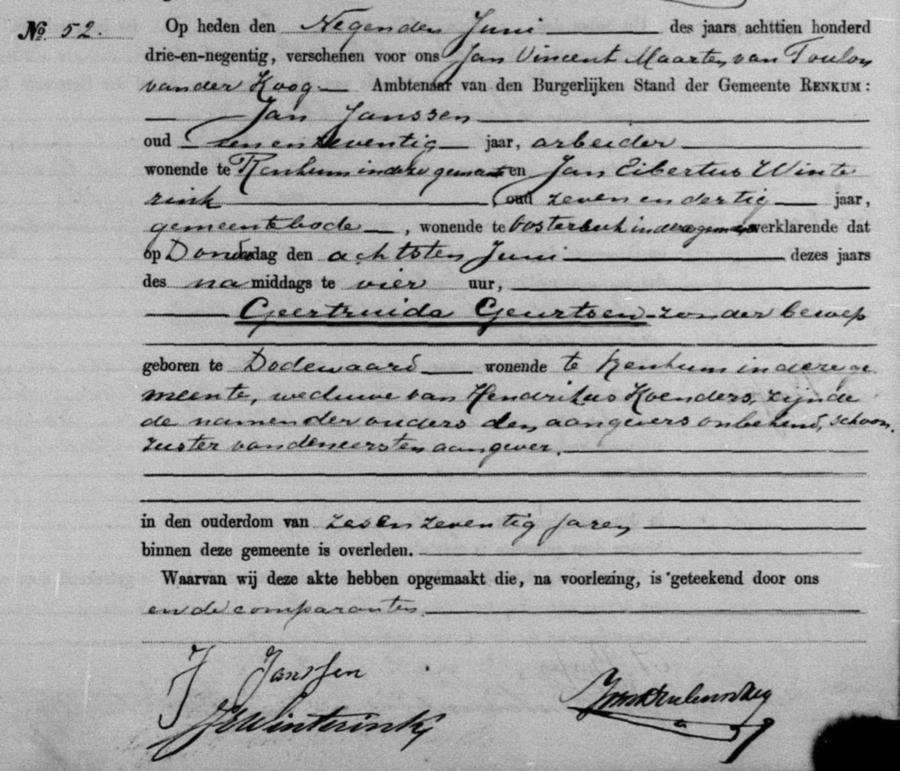 No. 52. Op heden den Negenden Juni des jaars achttien honderd
drie-en-negentig, verschenen voor ons Jan Vincent Maarten van Toulon
van der Koog Ambtenaar van den Burgerlijken Stand der Gemeente RENKUM:
Jan Janssen
oud een en zeventig jaar, arbeider
wonende te Renkum in deze gemeente en Jan Eibertus Winte
rink oud zeven en dertig jaar,
gemeentebode, wonende te Oosterbeek in deze gemeente verklarende dat
op Donderdag den achtsten Juni dezes jaars
des na middags te vier uur,
Geertruida Geurtsen zonder beroep
geboren te Dodewaard wonende te Renkum in deze ge
meente, weduwe van Hendrikus Koenders, zijnde
de namen der ouders den aangevers onbekend, schoon
zuster van den eersten aangever.
in den ouderdom van zeven zeventig jaren
binnen deze gemeente is overleden.
Waarvan wij deze akte hebben opgemaakt die, na voorlezing, is geteekend door ons
en de comparanten.
J Janssen
JE Winterink